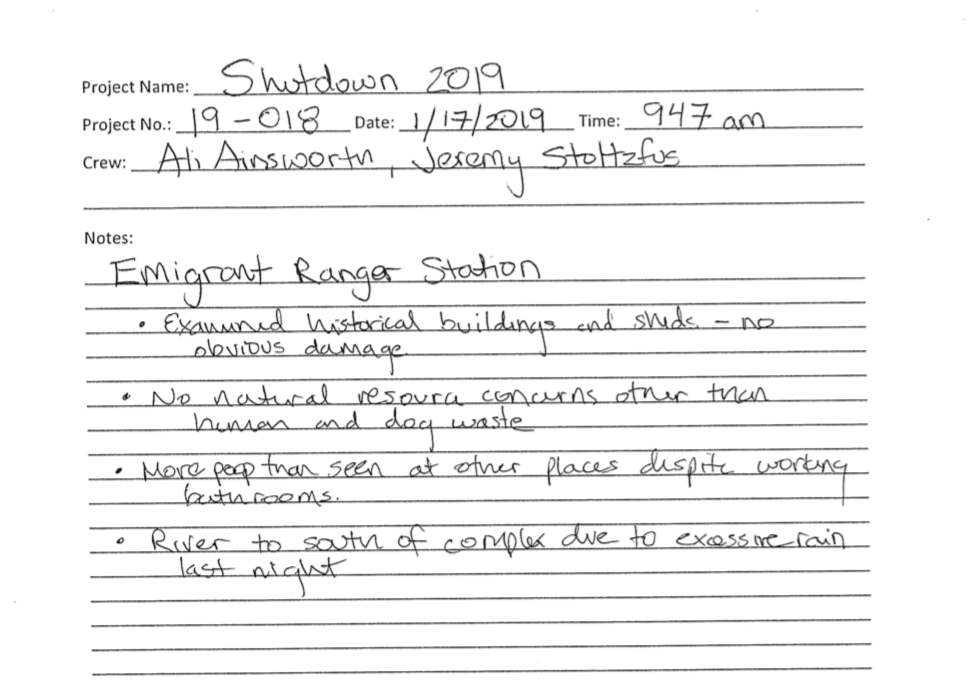 Project Name: Shutdown 2019
Project No.: 19-018 Date: 1/17/2019 Time: 947 am
Crew: Ali Ainsworth, Jeremy Stoltzfus
Notes:
Emigrant Ranger Station
• Examined historical buildings and sheds - no
obvious damage.
• No natural resource concerns other than
human and dog waste
• More poop than seen at other places despite working
bathrooms.
• River to south of complex due to excessive rain
last night